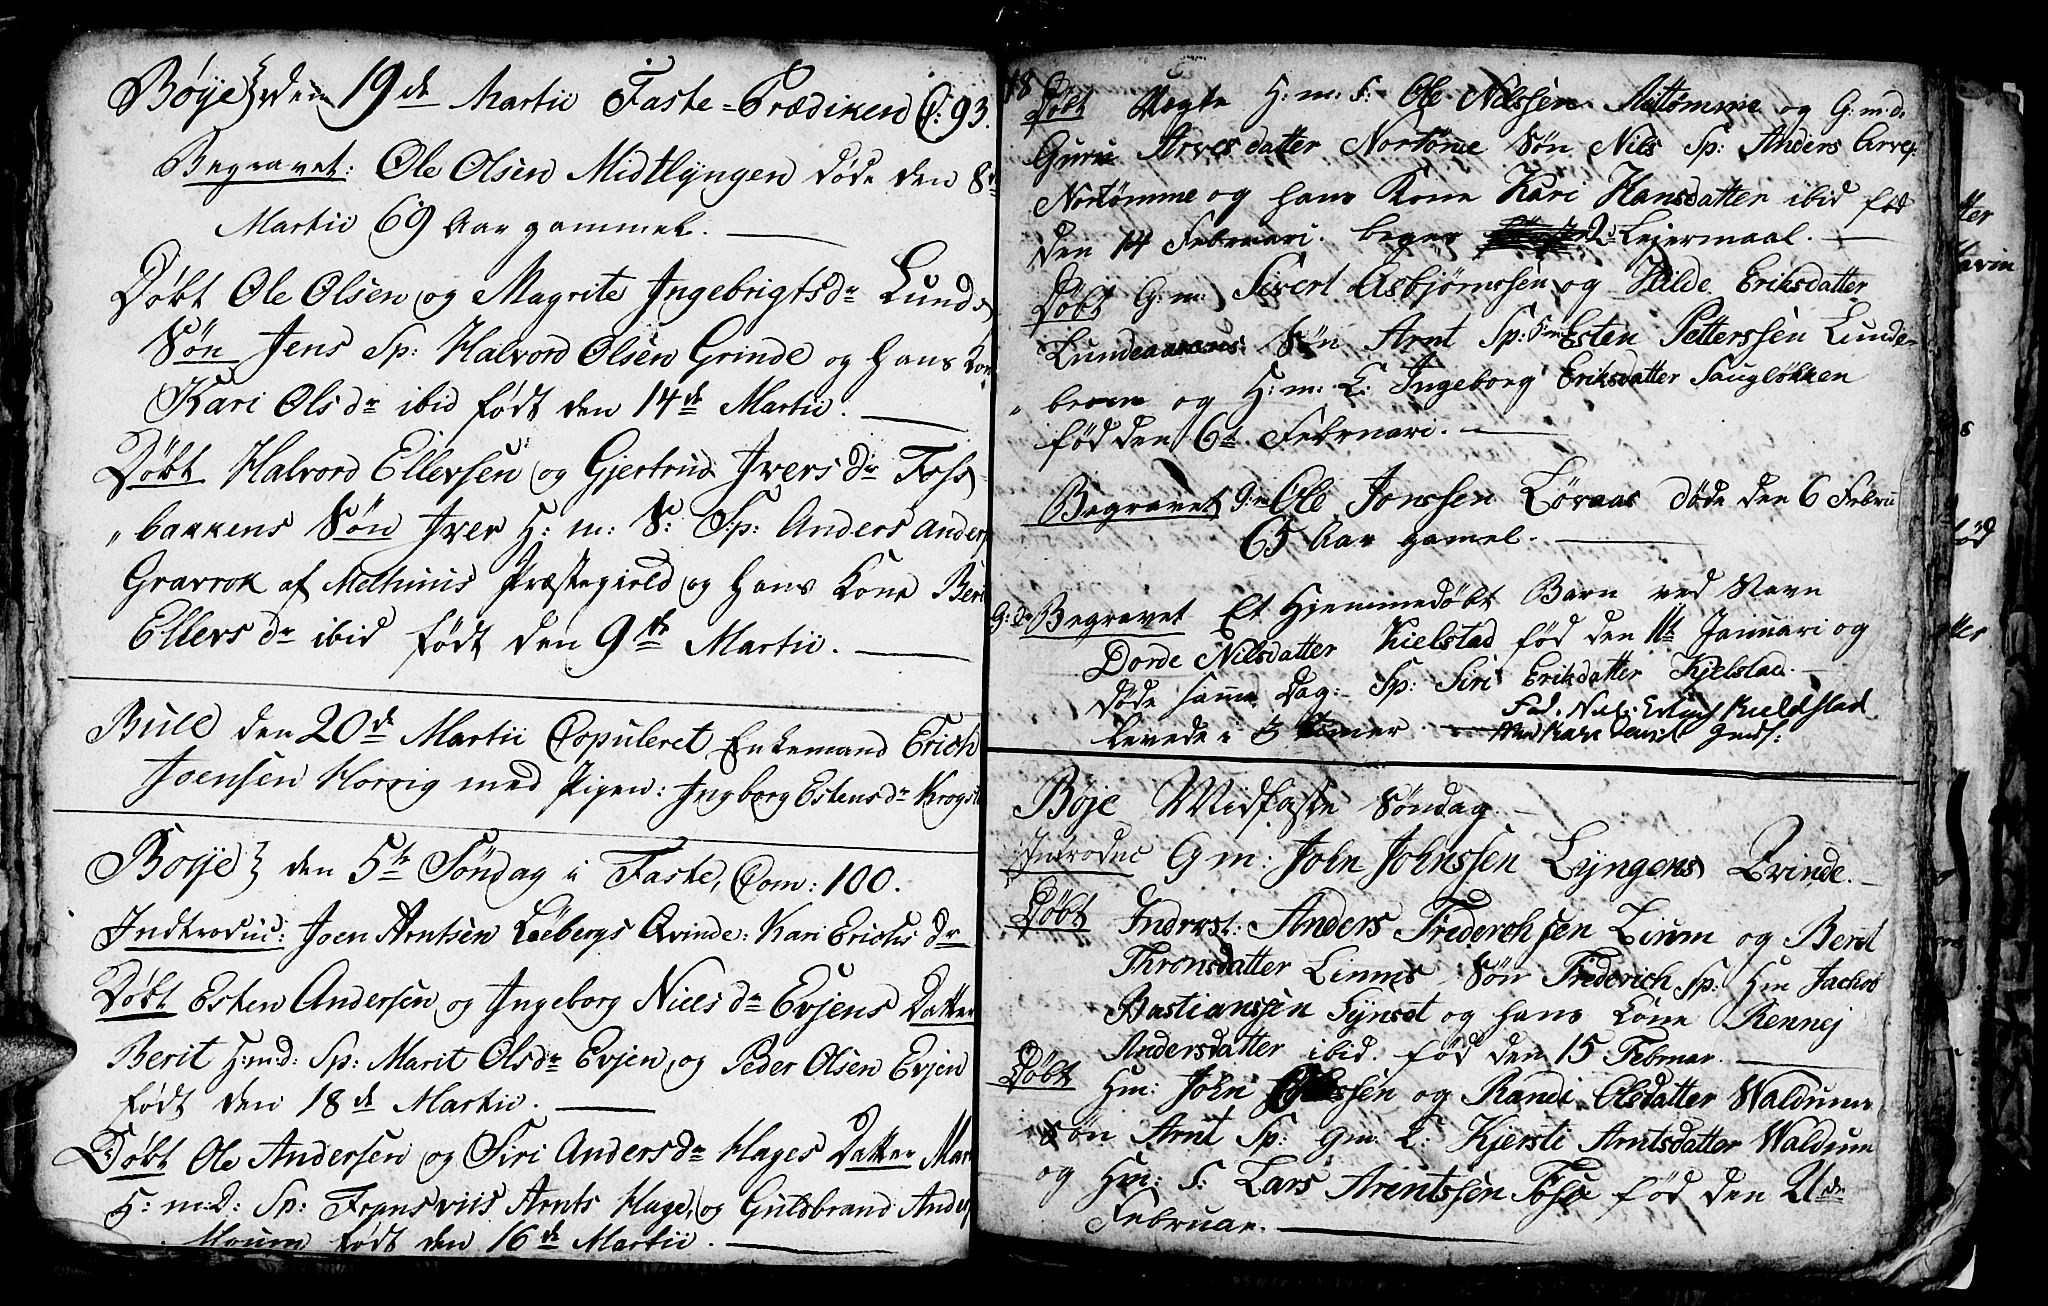 Böÿe den 19de Martii Faste-Prædiken C: 93.
Begravet: Ole Olsen Midtlÿngen døde den 8de
Martii 69 Aar gammel.
Døbt Ole Olsen og Magrite Ingebrigtsdr Lunds
Søn Jens Sp: Halvord Olsen Grinde og hans Kone
Kari Olsdr ibid født den 14de Martii.
Døbt Halvord Ellevsen og Gjertrud Iversdr Foss-
bakkens Søn Iver H: m: S: Sp: Anders Anders
Gravrok af Melhuus Præstegield og hans Kone Beri
Ellersdr ibid født den 9de Martii.
Buld den 20de Martii Copuleret Enkemand Erich
Joensen Horrig med Pigen: Ingborg Estensdr Krogst
Boÿe den 5te Söndag i Faste, Com: 100.
Indtroduc: Joen Arntsen Løebergs Qvinde: Kari Erichsdr
Døbt Esten Andersen og Ingeborg Nielsdr Evjens Datter
Berit H:m:d: Sp: Marit Olsdr Evjen, og Peder Olsen Evjen
født den 18de Martii.
Døbt Ole Andersen og Siri Andersdr Hages Datter Mar
H: m:D: Sp: Arnts Hage, og Guldbrand Anders
Moum født den 16de Martii.
18
Døbt Uægte H: m: S: Ole Nilssen og G: m: d:
Guru Arvesdatter Nortømme Søn Nils Sp: Anders Arves:
Nortømme og hans Kone Kari Hansdatter ibid fød
den 14 Februari. begges 2d Lejermaal.
Døbt G: m: Sivert Asbjørnssen og Hilde Eriksdatter
Lundeaunens Søn Arnt Sp: Esten Petterssen Lunde-
broen og H: m: L: Ingeborg Eriksdatter Saugløkken
fød den 6te Februari.
Begravet G:m Ole Jonssen Løraas døde den 6 Febru
65 Aar gamel.
G: d: Begravet Et Hjemmedøbt Barn ved Navn
Dorde Nilsdatter Kielstad fød den 11te Januari og
døde samme Dag: Sp: Siri Eriksdatter Kjelstad.
levede i 3 Timer.
Boje Midfaste Søndag.
Introduc G m: John Johnssen Lyngens Qvinde.
Døbt Indrost: Anders Frederchsen Linm og Berit
Thronsdatter Linnes Søn Frederich Sp: Hm Jachob
Bastianssen Synset og hans Kone Rennej
Andersdatter ibid. fød den 15 Februar.
Døbt Hm: John og Randi Olsdatter Waldum
Søn Arnt Sp: Gm: L: Kjersti Arntsdatter Waldum
og Hm: S: Lars Arentssen Foss fød den 21de
Februar.